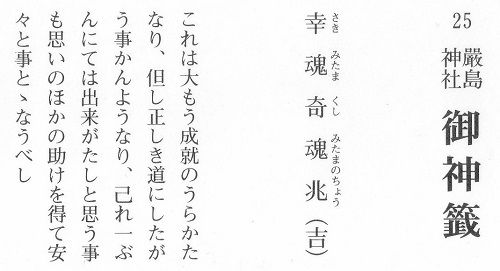 25
嚴島神社
御神籤
幸魂奇魂兆(吉)
さきみたまくしみたまのちょう
これは大もう成就のうらかた
なり、但し正しき道にしたが
う事かんようなり、己れ一ぶ
んにては出来がたしと思う事
も思いのほかの助けを得て安
々と事とゝなうべし